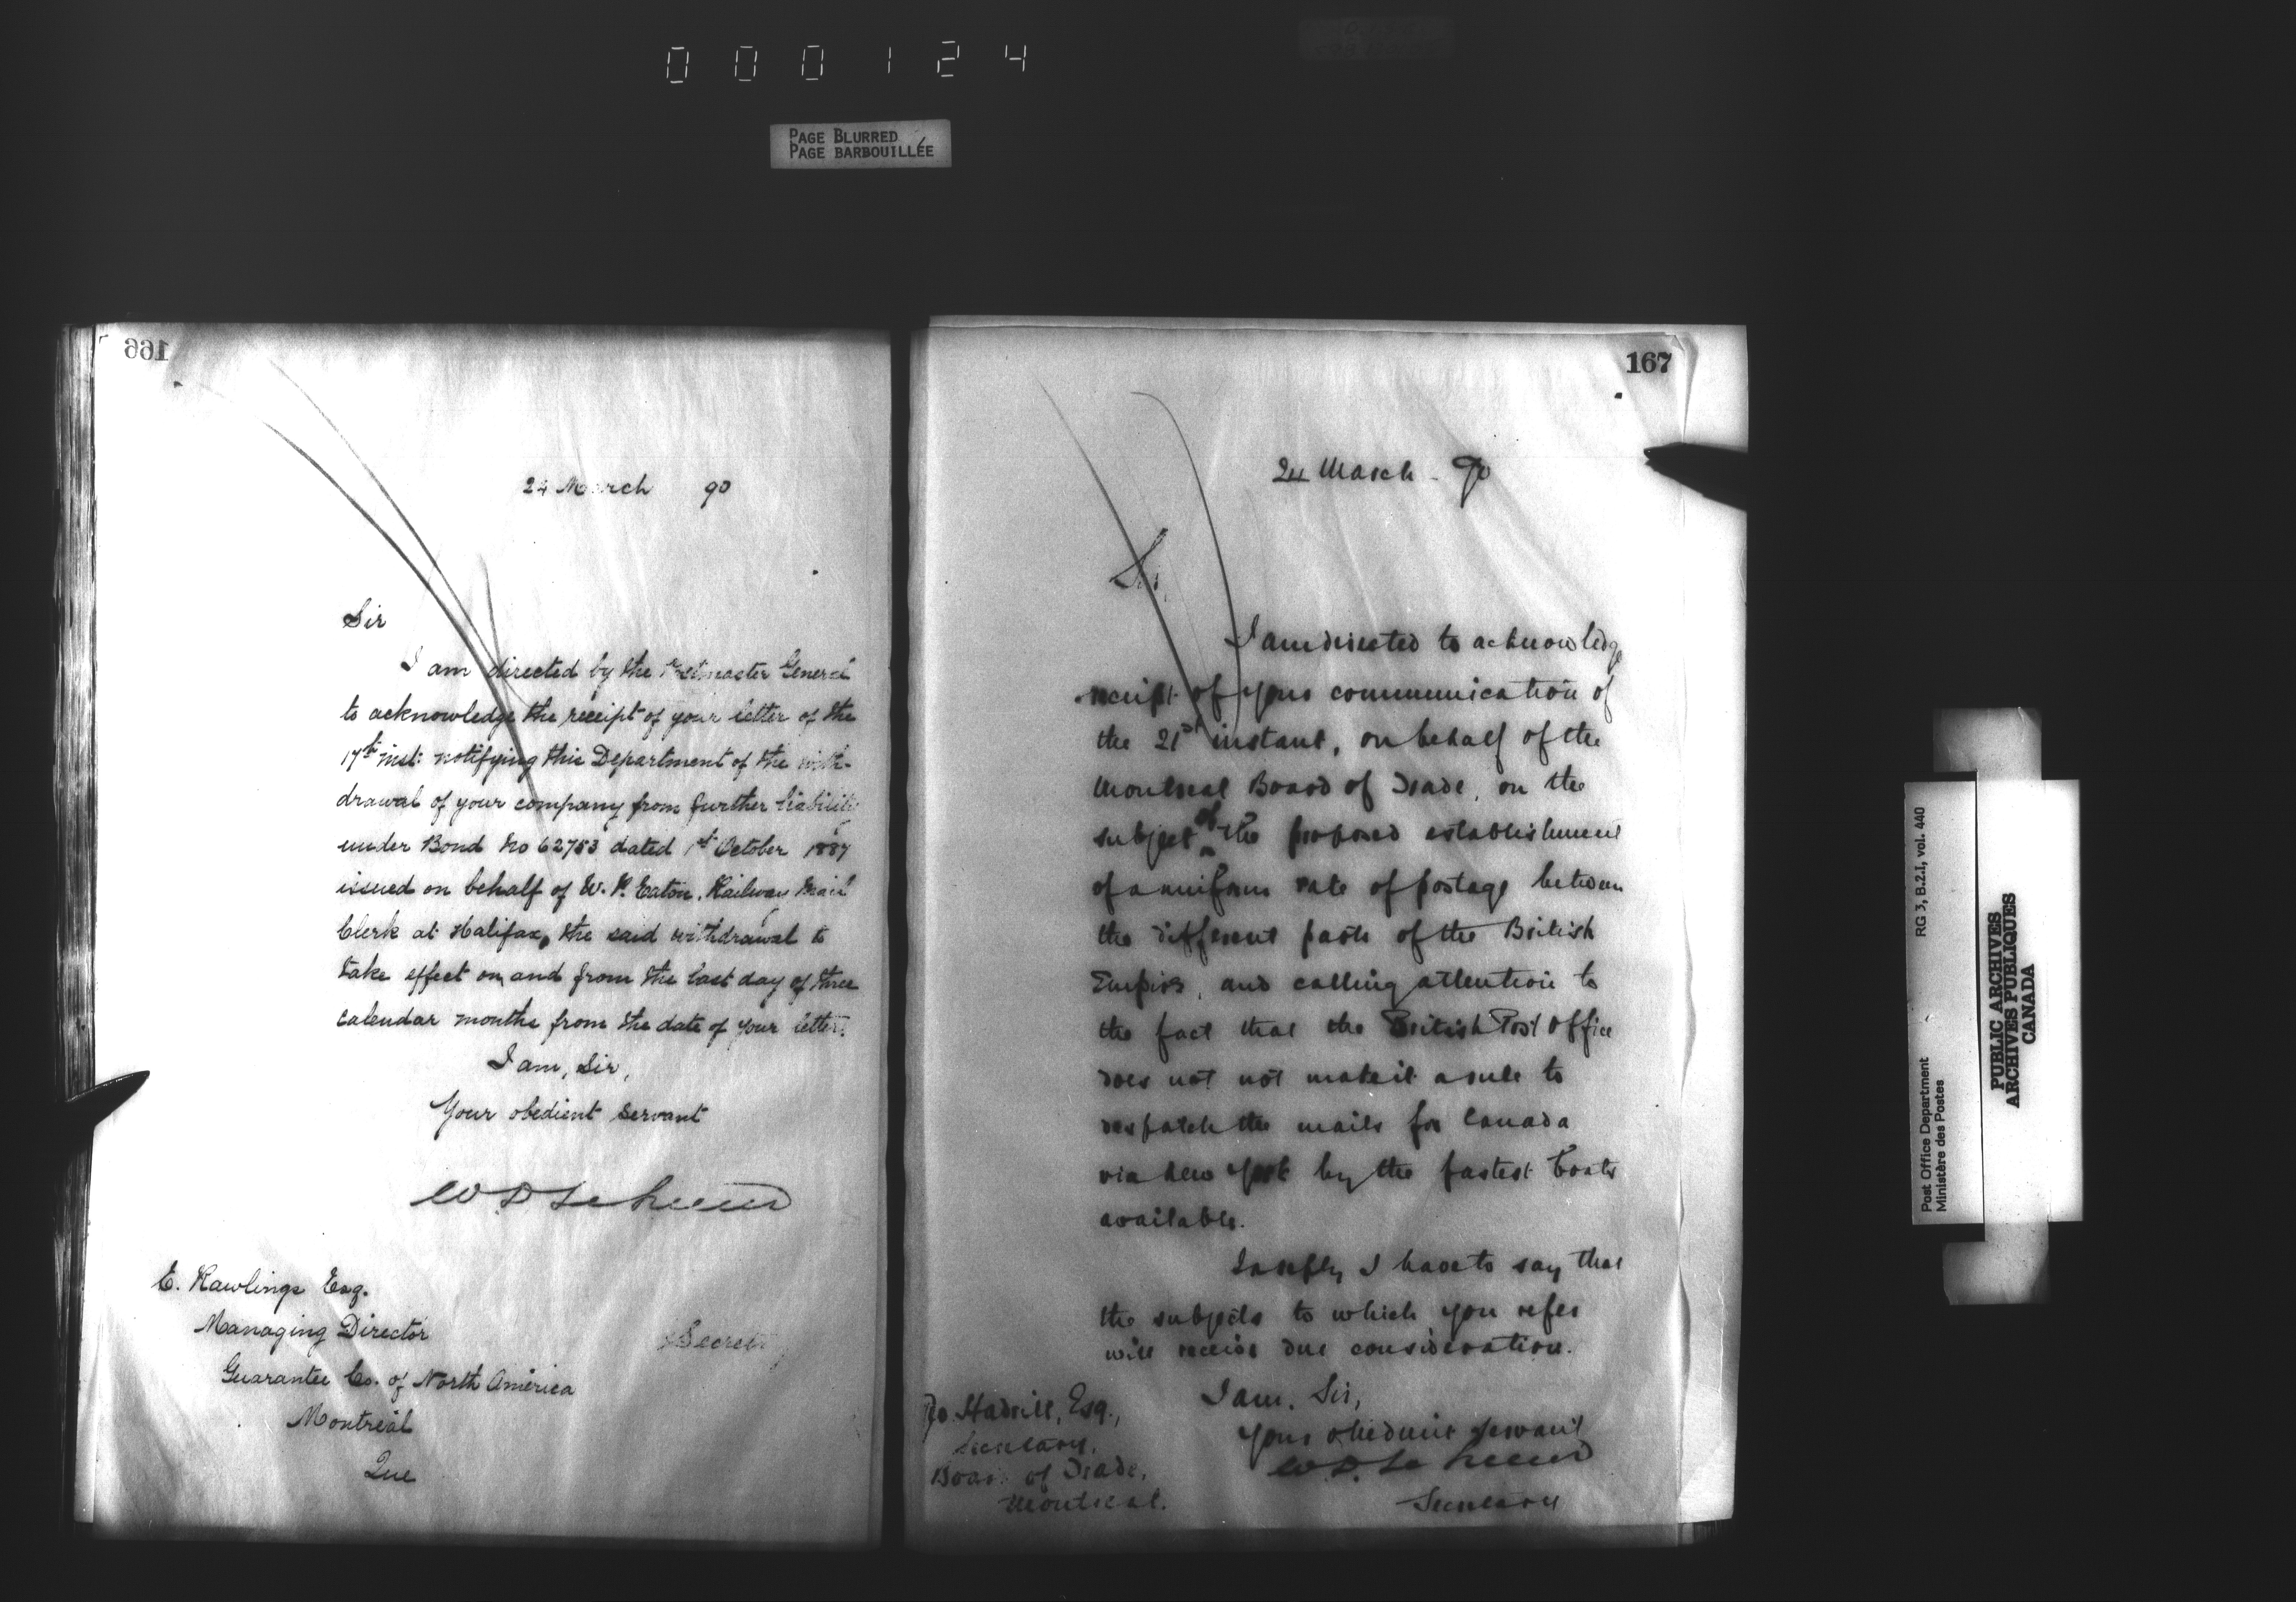 000124
PAGE BLURRED
PAGE BARBOUILLÉE
166
24 March 90
Sir
I am directed by the Postmaster General
to acknowledge the receipt of your letter of the
17th inst: notifying this Department of the with-
drawal of your company from further liability
under Bond No 62753 dated 1st October 1887
issued on behalf of W. P. Eaton, Railway Mail
Clerk at Halifax, the said withdrawal to
take effect on and from the last day of three
calendar months from the date of your letter.
I am, Sir,
Your obedient servant
W D LeSueur
Secretary
E. Rawlings Esq.
Managing Director
Guarantee Co. of North America
Montreal
Que
167
24 March - 90
Sir,
I am directed to acknowledge
receipt of your communication of
the 21st instant, on behalf of the
Montreal Board of Trade, on the
subject of the proposed establishment
of a uniform rate of postage between
the different parts of the British
Empire, and calling attention to
the fact that the British Post Office
does not not make it a rule to
despatch the mails for Canada
via New York by the fastest boats
available.
In reply I have to say that
the subjects to which you refer
will receive due consideration.
I am, Sir,
Your obedient servant
W. D. LeSueur
Secretary
Hadrill, Esq.,
Secretary,
Board of Trade,
Montreal.
Post Office Department
Ministère des Postes
RG 3, B.2.I, vol. 440
PUBLIC ARCHIVES
ARCHIVES PUBLIQUES
CANADA